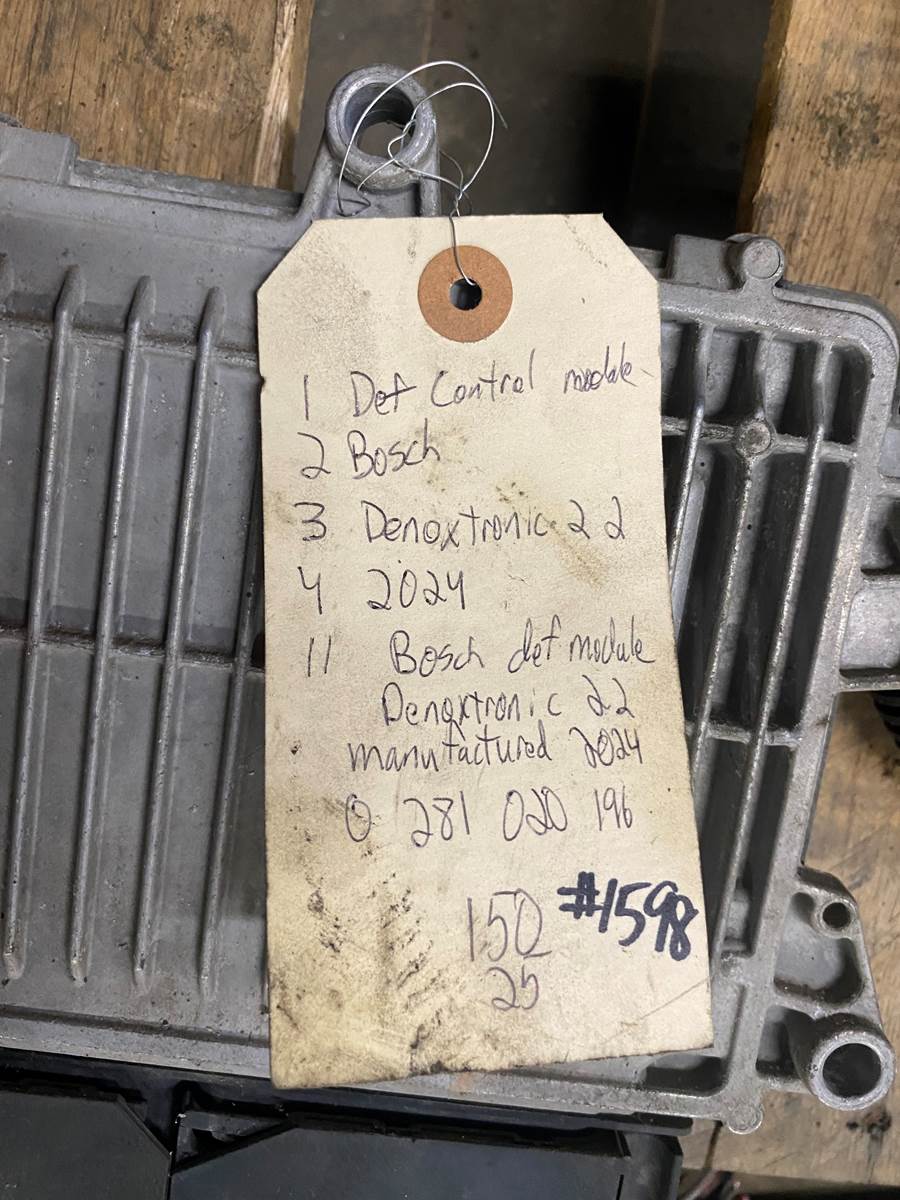 1 Def Control module
2 Bosch
3 Denoxtronic 2 2
4 2024
11 Bosch def module
Denoxtronic 22
manufactured 2024
0 281 020 196
150 #1598
25